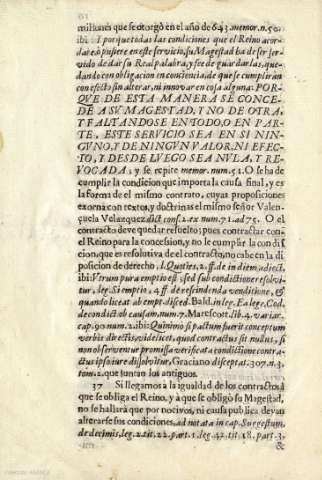 millones que se otorgò en el año de 643. memor. n. 50.
ibi: I porque todas las condiciones que el Reino acor-
dare, ò pusiere en este servicio, su Magestad ha de ser ser-
vido de dar su Real palabra, y fee de guardarlas, que-
dando con obligacion en conciencia, de que se cumpliràn
con efecto sin alterar, ni innovar en cosa alguna: POR-
QVE DE ESTA MANERA SE CONCE-
DE A SV MAGESTAD, Y NO DE OTRA,
Y FALTANDOSE EN TODO, O EN PAR-
TE, ESTE SERVICIO SEA EN SI NIN-
GVNO, Y DE NINGVN VALOR, NI EFEC-
TO, Y DESDE LVEGO SEA NVLA, Y RE-
VOCADA; y se repite memor. num. 51. O se ha de
cumplir la condicion que importa la causa final, y es
la forma de el mismo contrato, cuyas proposiciones
exorna con textos, y doctrinas el mismo señor Valen-
çuela Velazquez dict. cons. 2. ex num. 71. ad 75. O el
contracto deve quedar resuelto; pues contractar con
el Reino para la concession, y no le cumplir la condi-
cion, que es resolutiva de el contracto, no cabe en la di-
posicion de derecho, l. Quoties, 2. ff. de in diem adiect.
ibi: Verum pura emptio est, sed sub conditione resolvi-
tur, leg. Si emptio, 4. ff. de rescindenda venditione, &
quando liceat ab empt. disced. Bald. in leg. Ea lege, Cod.
de condict. ob causam, num. 7. Marescott. lib. 4. variar.
cap. 90. num. 2. ibi: Quinimo si pactum fuerit conceptum
verbis directis, videlicet, quod contractus sit nullus, si
non observentur promissa verificata conditione contra-
ctus ipso iure dissolvitur, Graciano disceptat. 307. n. 3.
tom. 2. que juntan los antiguos.
37 Si llegamos à la igualdad de los contractos à
que se obliga el Reino, y à que se obligò su Magestad,
no se hallarà que por nocivos, ni causa publica devan
alterarse sus condiciones, ad notata in cap. Suggestum,
de decimis, leg. 22. tit. 22. part. 1. leg. 42. tit. 18. part. 3.
&